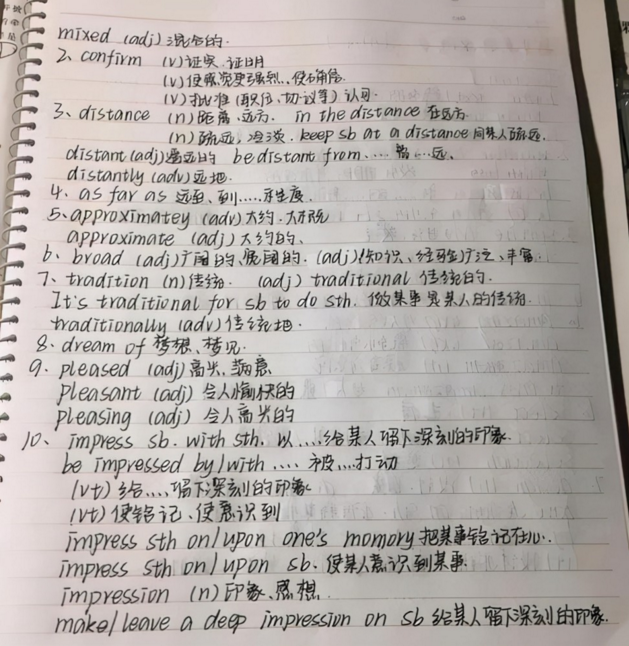 mixed (adj) 混合的.
2、confirm (v) 证实、证明
(v) 使感觉更强烈、使确信
(v) 批准(职位、协议等) 认可.
3、distance (n) 距离、远方. in the distance 在远方
(n) 疏远, 冷淡. keep sb at a distance 同某人疏远.
distant (adj) 遥远的 be distant from .... 离...远、
distantly (adv) 远地.
4、as far as 远至、到.....程度.
5、approximatey (adv) 大约、大概
approximate (adj) 大约的、
6、broad (adj) 广阔的、宽阔的. (adj) (知识、经验) 广泛、丰富.
7、tradition (n) 传统. (adj) traditional 传统的.
It's traditional for sb to do sth. 做某事是某人的传统.
traditionally (adv) 传统地.
8、dream of 梦想、梦见.
9、pleased (adj) 高兴、满意
pleasant (adj) 令人愉快的
pleasing (adj) 令人高兴的
10、impress sb. with sth. 以....给某人留下深刻的印象.
be impressed by/with .... 被....打动
(vt) 给....留下深刻的印象
(vt) 使铭记、使意识到
impress sth on/upon one's momory 把某事铭记在心..
impress sth on/upon sb. 使某人意识到某事.
impression (n) 印象、感想.
make/leave a deep impression on sb 给某人留下深刻的印象.